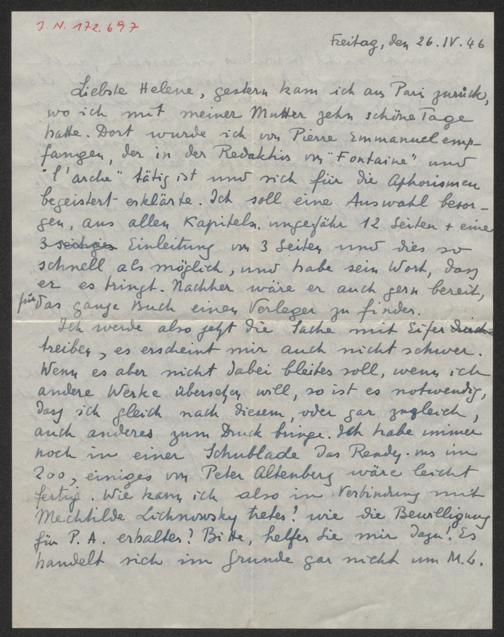 J.N. 172.697
Freitag, den 26.IV.46
Liebste Helene, gestern kam ich aus Paris zurück,
wo ich mit meiner Mutter zehn schöne Tage
hatte. Dort wurde ich von Pierre Emmanuel emp-
fangen, der in der Redaktion von "Fontaine" und
"l'arche" tätig ist und sich für die Aphorismen
begeistert erklärte. Ich soll eine Auswahl besor-
gen, aus allen Kapiteln, ungefähr 12 Seiten + eine
Einleitung von 3 Seiten und dies so
schnell als möglich, und habe sein Wort, dass
er es bringt. Nachher wäre er auch gern bereit,
für das ganze Buch einen Verleger zu finden.
Ich werde also jetzt die Sache mit Eifer
treiben, es erscheint mir auch nicht schwer.
Wenn es aber nicht dabei bleiben soll, wenn ich
andere Werke übersetzen will, so ist es notwendig,
dass ich gleich nach diesem, oder gar zugleich,
auch anderes zum Druck bringe. Ich habe immer
noch in einer Schublade das Rendez-vous im
Zoo, einiges von Peter Altenberg wäre leicht
fertig. Wie kann ich also in Verbindung mit
Mechtilde Lichnowsky treten? wie die Bewilligung
für P. A. erhalten? Bitte, helfen Sie mir dazu! Es
handelt sich im Grunde gar nicht um M.L.